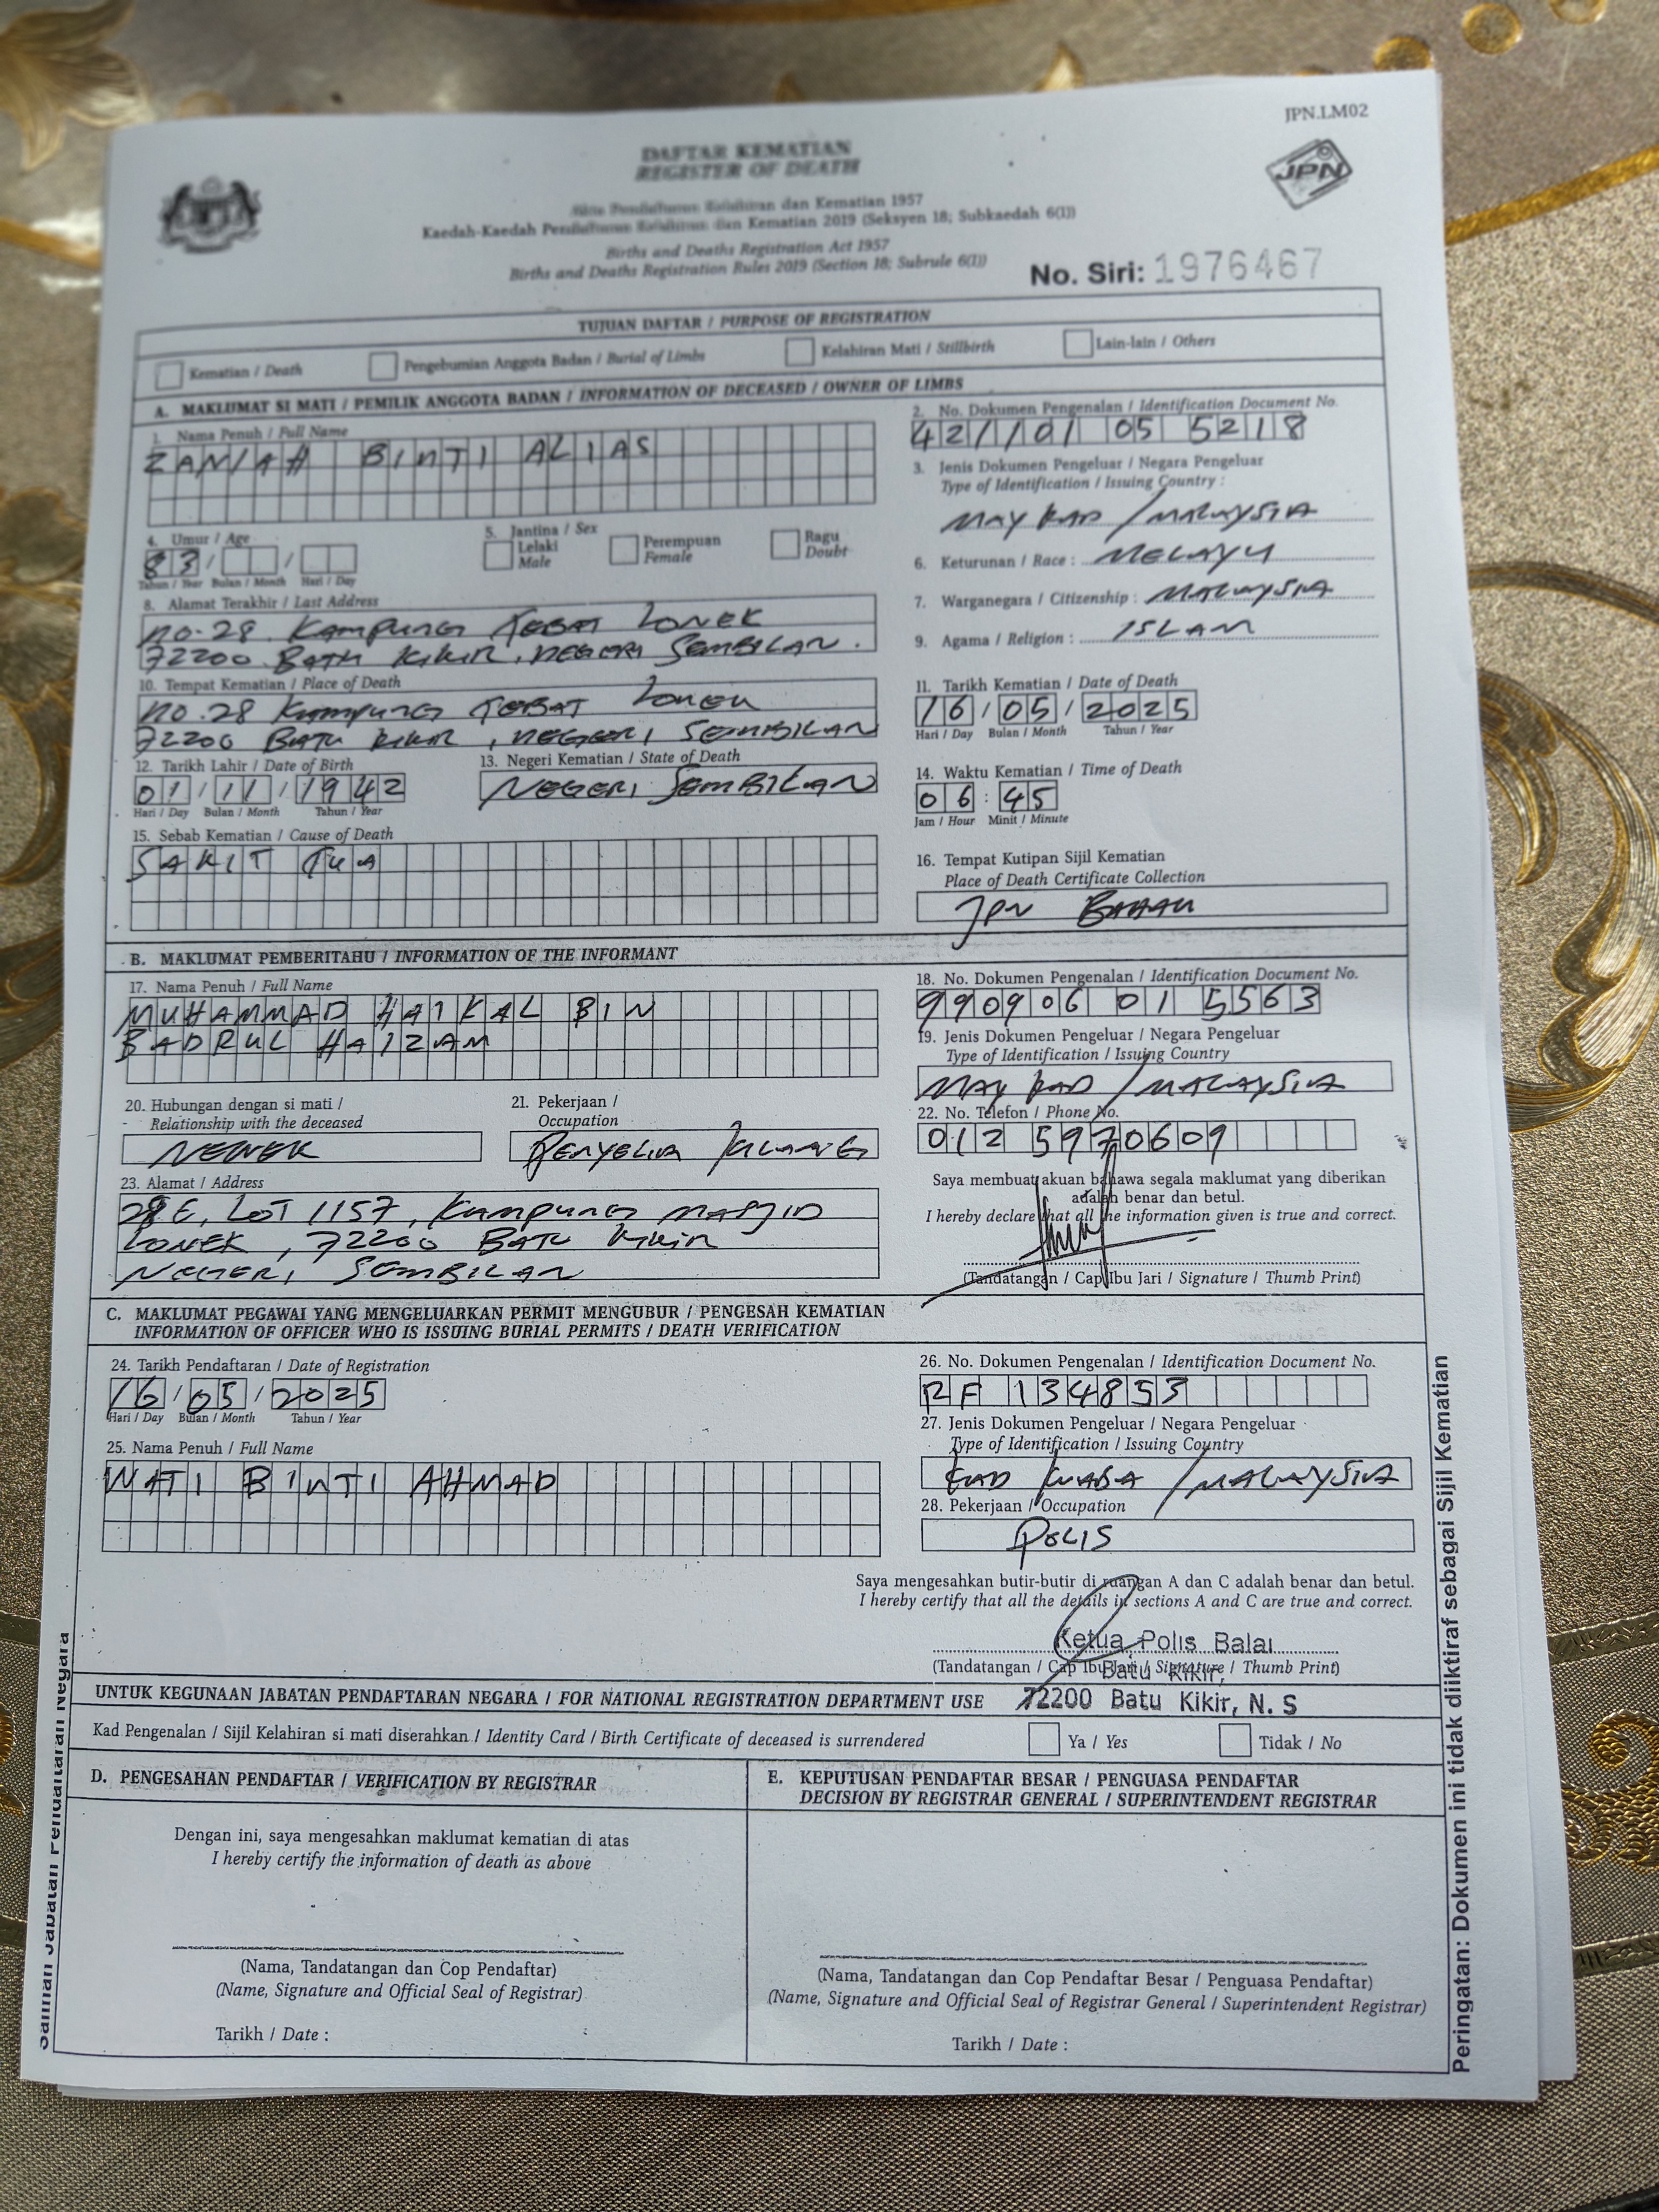 JPN.LM02
DAFTAR KEMATIAN
REGISTER OF DEATH
JPN
Akta Pendaftaran Kelahiran dan Kematian 1957
Kaedah-Kaedah Pendaftaran Kelahiran dan Kematian 2019 (Seksyen 18; Subkaedah 6(1))
Births and Deaths Registration Act 1957
Births and Deaths Registration Rules 2019 (Section 18; Subrule 6(1))
No. Siri: 1976467
TUJUAN DAFTAR / PURPOSE OF REGISTRATION
Kematian / Death
Pengebumian Anggota Badan / Burial of Limbs
Kelahiran Mati / Stillbirth
Lain-lain / Others
A. MAKLUMAT SI MATI / PEMILIK ANGGOTA BADAN / INFORMATION OF DECEASED / OWNER OF LIMBS
1. Nama Penuh / Full Name
ZANIAH BINTI ALIAS
2. No. Dokumen Pengenalan / Identification Document No.
421101 05 5218
3. Jenis Dokumen Pengeluar / Negara Pengeluar
Type of Identification / Issuing Country :
MAY KAD / MALAYSIA
4. Umur / Age
83 / /
Tahun / Year Bulan / Month Hari / Day
5. Jantina / Sex
Lelaki
Male
Perempuan
Female
Ragu
Doubt
6. Keturunan / Race : MELAYU
7. Warganegara / Citizenship : MALAYSIA
8. Alamat Terakhir / Last Address
NO.28 KAMPUNG TEBAT LONEK
72200 BATU KIKIR, NEGERI SEMBILAN.
9. Agama / Religion : ISLAM
10. Tempat Kematian / Place of Death
NO.28 KAMPUNG TEBAT LONEK
72200 BATU KIKIR, NEGERI SEMBILAN
11. Tarikh Kematian / Date of Death
16 / 05 / 2025
Hari / Day Bulan / Month Tahun / Year
12. Tarikh Lahir / Date of Birth
01 / 11 / 1942
Hari / Day Bulan / Month Tahun / Year
13. Negeri Kematian / State of Death
NEGERI SEMBILAN
14. Waktu Kematian / Time of Death
06 : 45
Jam / Hour Minit / Minute
15. Sebab Kematian / Cause of Death
SAKIT TUA
16. Tempat Kutipan Sijil Kematian
Place of Death Certificate Collection
JPN BAHAU
B. MAKLUMAT PEMBERITAHU / INFORMATION OF THE INFORMANT
17. Nama Penuh / Full Name
MUHAMMAD HAIKAL BIN
BADRUL HAIZAM
18. No. Dokumen Pengenalan / Identification Document No.
990906 01 5563
19. Jenis Dokumen Pengeluar / Negara Pengeluar
Type of Identification / Issuing Country
MAY KAD / MALAYSIA
20. Hubungan dengan si mati /
Relationship with the deceased
NENEK
21. Pekerjaan /
Occupation
PENYELIA KILANG
22. No. Telefon / Phone No.
012 5970609
23. Alamat / Address
28E, LOT 1157, KAMPUNG MASJID
LONEK, 72200 BATU KIKIR
NEGERI SEMBILAN
Saya membuat akuan bahawa segala maklumat yang diberikan
adalah benar dan betul.
I hereby declare that all the information given is true and correct.
(Tandatangan / Cap Ibu Jari / Signature / Thumb Print)
C. MAKLUMAT PEGAWAI YANG MENGELUARKAN PERMIT MENGUBUR / PENGESAH KEMATIAN
INFORMATION OF OFFICER WHO IS ISSUING BURIAL PERMITS / DEATH VERIFICATION
24. Tarikh Pendaftaran / Date of Registration
16 / 05 / 2025
Hari / Day Bulan / Month Tahun / Year
25. Nama Penuh / Full Name
WATI BINTI AHMAD
26. No. Dokumen Pengenalan / Identification Document No.
RF 134853
27. Jenis Dokumen Pengeluar / Negara Pengeluar
Type of Identification / Issuing Country
KAD KUASA / MALAYSIA
28. Pekerjaan / Occupation
POLIS
Saya mengesahkan butir-butir di ruangan A dan C adalah benar dan betul.
I hereby certify that all the details in sections A and C are true and correct.
Ketua Polis Balai
(Tandatangan / Cap Ibu Jari / Signature / Thumb Print)
Batu Kikir,
72200 Batu Kikir, N. S
UNTUK KEGUNAAN JABATAN PENDAFTARAN NEGARA / FOR NATIONAL REGISTRATION DEPARTMENT USE
Kad Pengenalan / Sijil Kelahiran si mati diserahkan / Identity Card / Birth Certificate of deceased is surrendered
Ya / Yes
Tidak / No
D. PENGESAHAN PENDAFTAR / VERIFICATION BY REGISTRAR
Dengan ini, saya mengesahkan maklumat kematian di atas
I hereby certify the information of death as above
(Nama, Tandatangan dan Cop Pendaftar)
(Name, Signature and Official Seal of Registrar)
Tarikh / Date :
E. KEPUTUSAN PENDAFTAR BESAR / PENGUASA PENDAFTAR
DECISION BY REGISTRAR GENERAL / SUPERINTENDENT REGISTRAR
(Nama, Tandatangan dan Cop Pendaftar Besar / Penguasa Pendaftar)
(Name, Signature and Official Seal of Registrar General / Superintendent Registrar)
Tarikh / Date :
Salinan Jabatan Pendaftaran Negara
Peringatan: Dokumen ini tidak diiktiraf sebagai Sijil Kematian